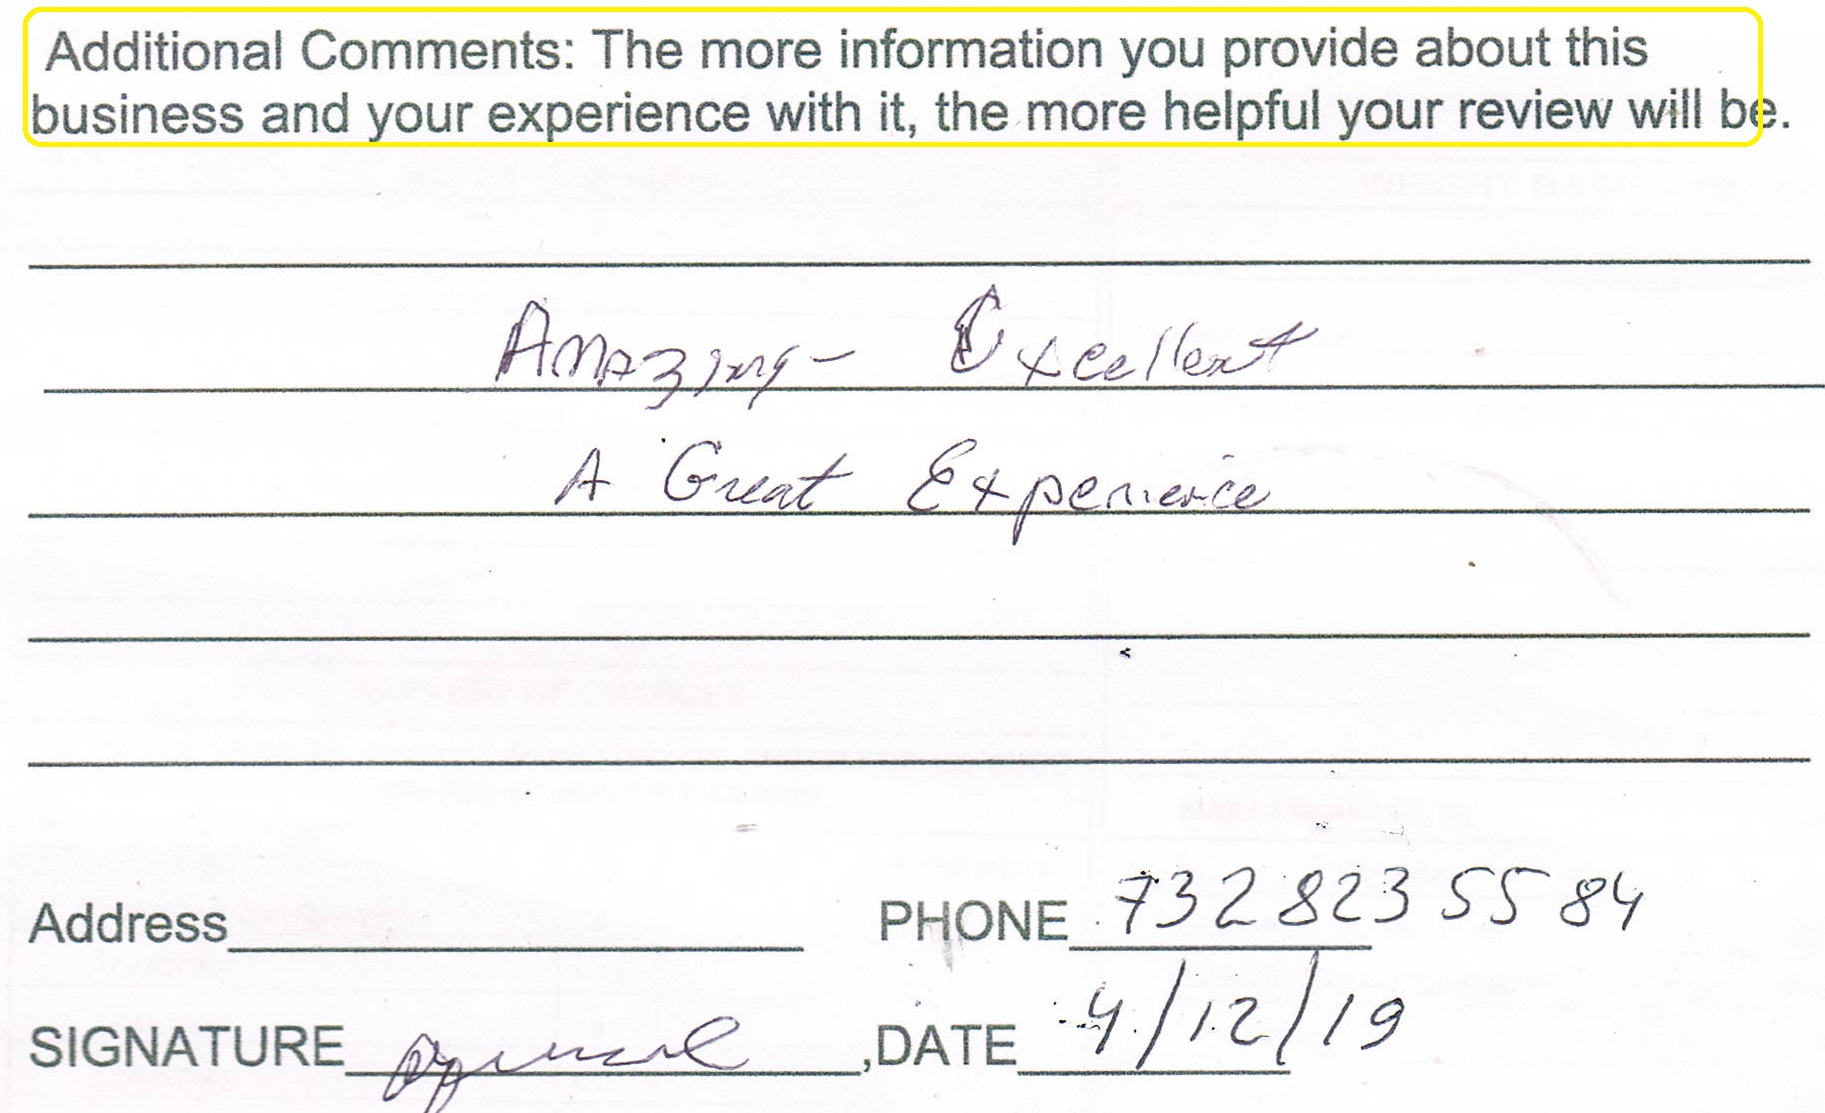 Additional Comments: The more information you provide about this
business and your experience with it, the more helpful your review will be.
Amazing - Excellent
A Great Experience
Address PHONE 732 823 55 84
SIGNATURE ,DATE 4/12/19